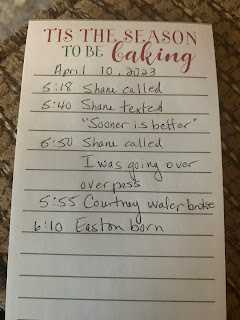 'TIS THE SEASON
TO BE baking
April 10, 2023
5:18 Shane called
5:40 Shane texted
"Sooner is better"
5:50 Shane called
I was going over
over pass
5:55 Courtney water broke
6:10 Easton born